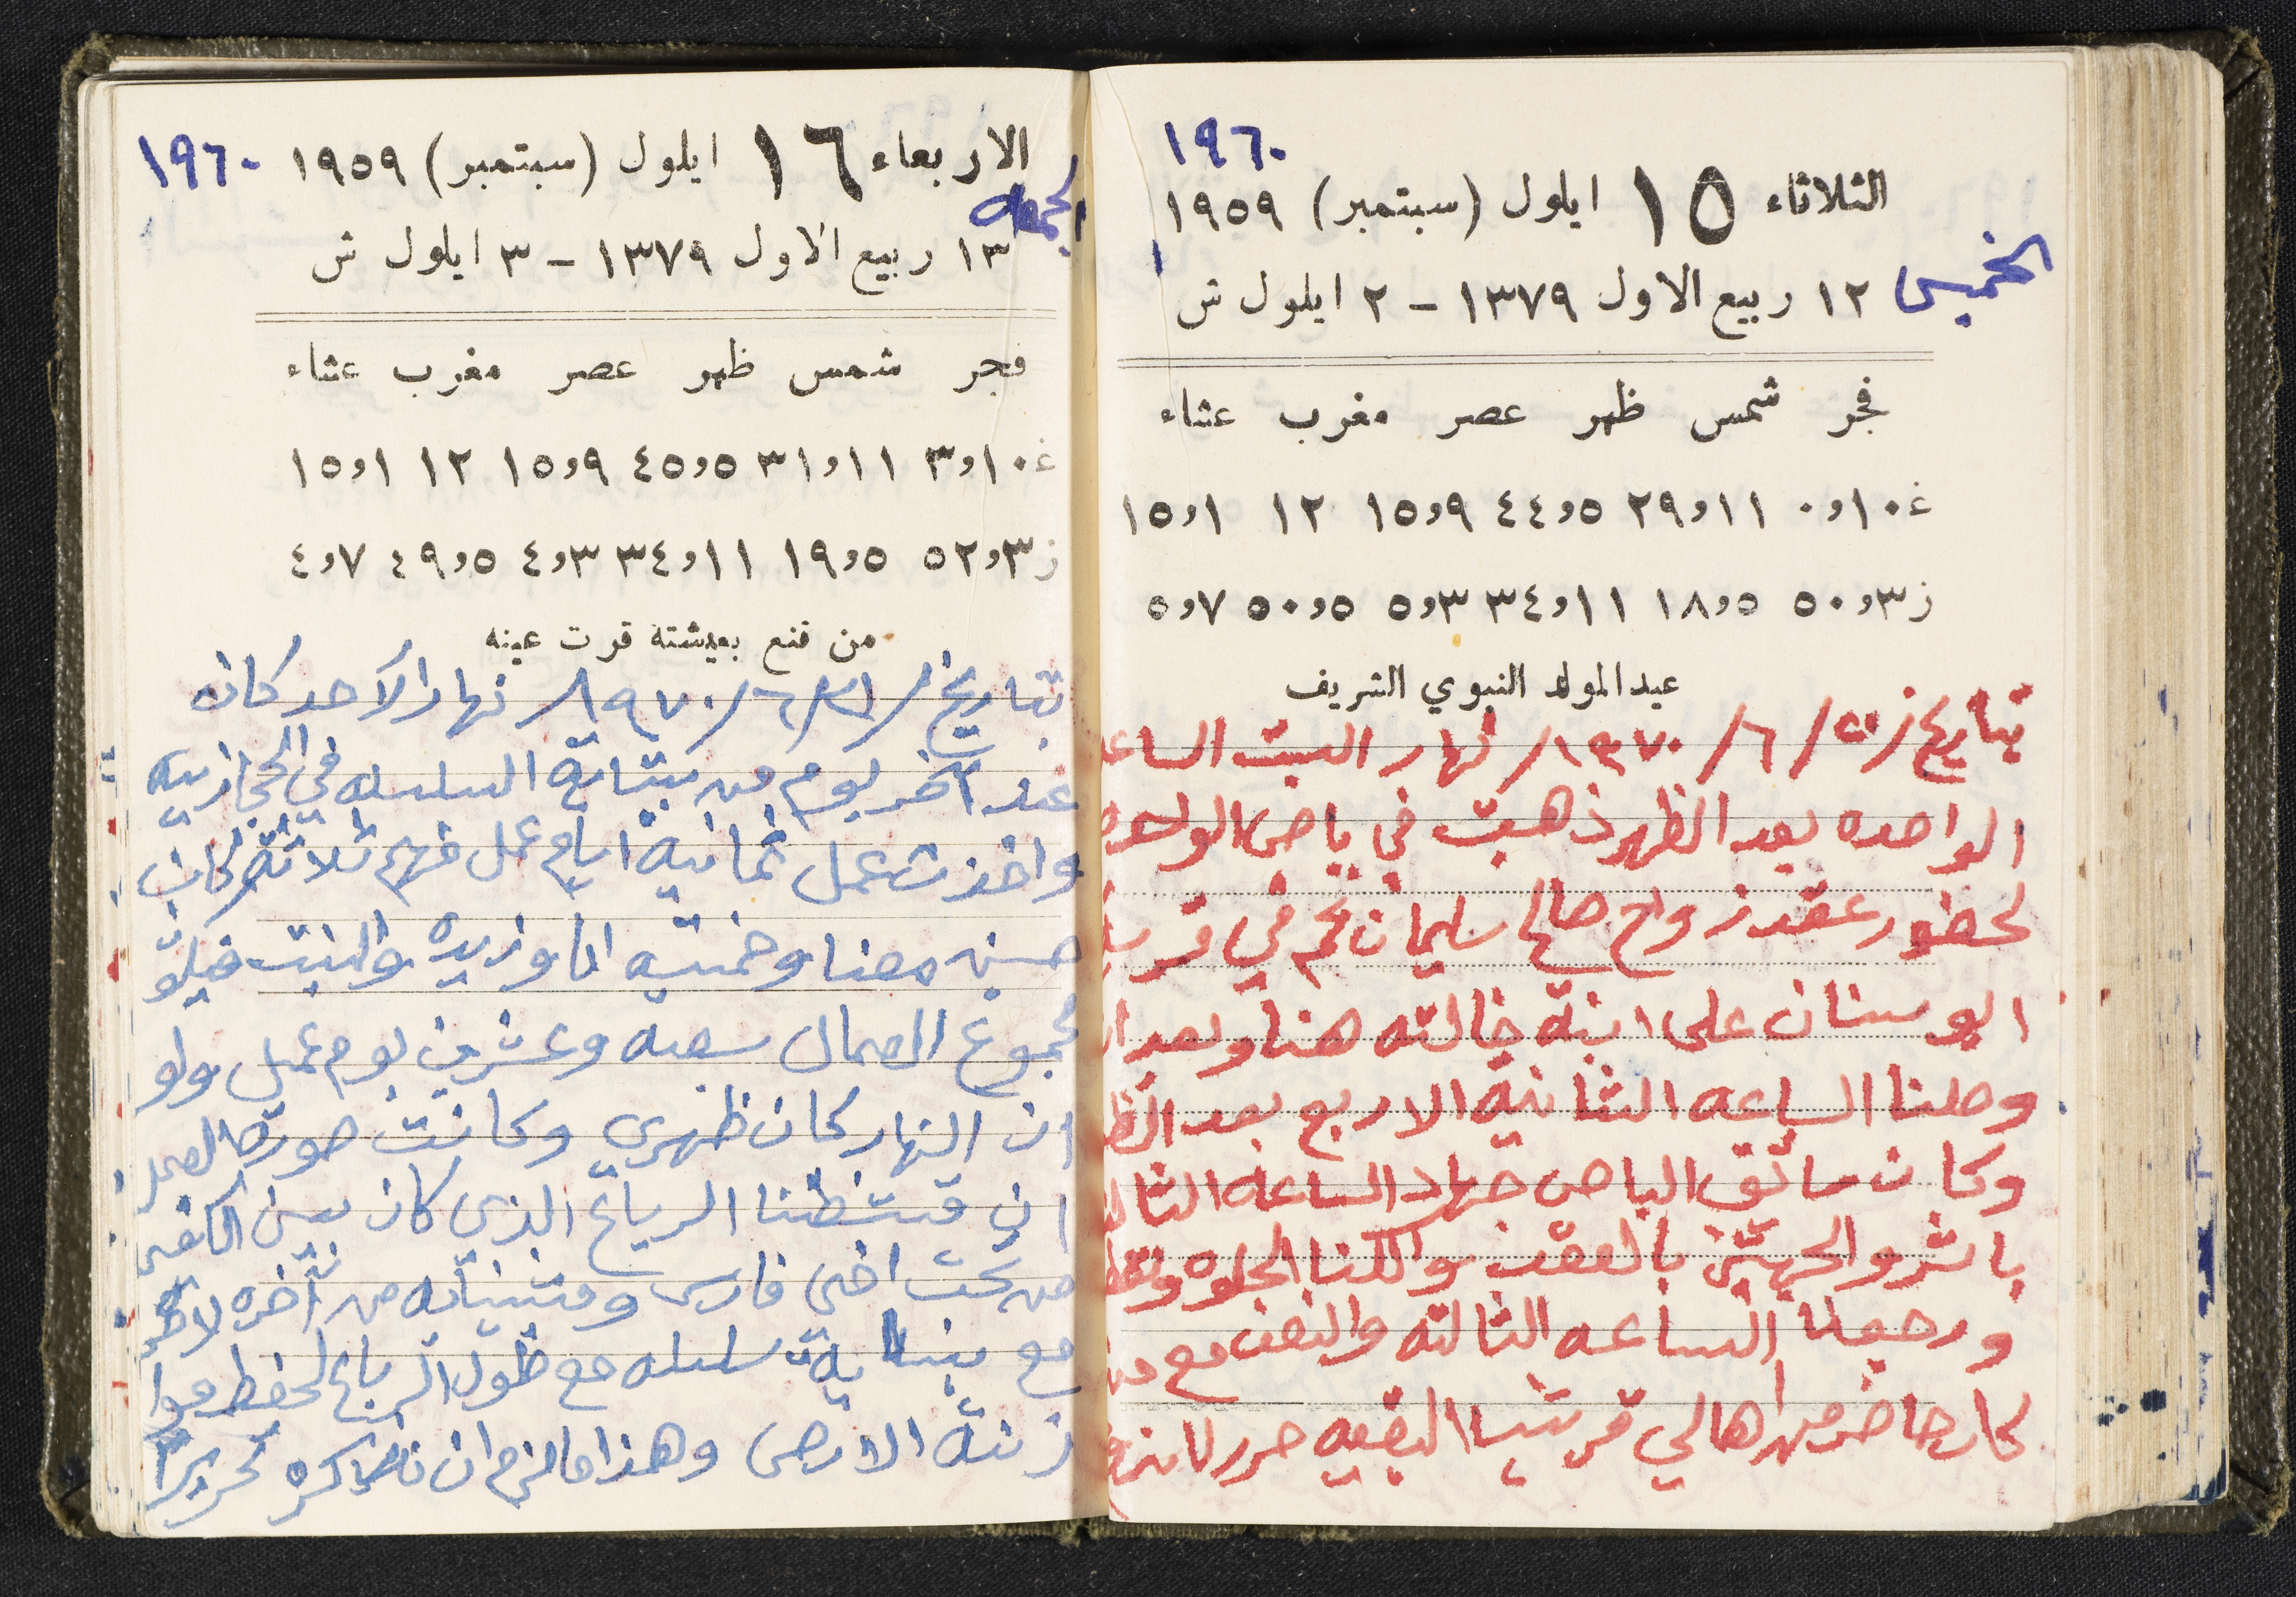 ١٩٦٠
الثلاثاء ١٥ ايلول (سبتمبر) ١٩٥٩
الخميس
١٢ ربيع الاول ١٣٧٩ – ٢ ايلول ش
فجر شمس ظهر عصر مغرب عشاء
غ ١٠و٠ ١١و٢٩ ٥و٤٤ ٩و١٥ ١٢ ١و١٥
ز ٣و٥٠ ٥و١٨ ١١و٣٤ ٣و٥ ٥و٥٠ ٧و٥
عيد المولد النبوي الشريف
بتاريخ /٢٠/٦/١٩٧٠/ نهار السبت الساعه
الواحده بعد الظهر ذهبت في باص الواحده
لحضور عقد زواج صالح سليمان في قرية
ابو سنان على ابنة خالته هنا وبعد ان
وصلنا الساعه الثانية الا ربع بعد الظهر
وكان سائق الباص جهاد الساعه الثالثه
باشرو الجهتين بالعقد واكلنا الحلوه
ورجعنا الساعه الثالثه والنصف مع من
كان حاضر من اهالي قريتنا البقيعه حرر
الاربعاء ١٦ ايلول (سبتمبر) ١٩٥٩ ١٩٦٠
الجمعه
١٣ ربيع الاول ١٣٧٩ – ٣ ايلول ش
فجر شمس ظهر عصر مغرب عشاء
غ ١٠و٣ ١١و٣١ ٥و٤٥ ٩و١٥ ١٢ ١و١٥
ز ٣و٥٢ ٥و١٩ ١١و٣٤ ٣و٤ ٥و٤٩ ٧و٤
من قنع بعيشته قرت عينه
بتاريخ /٢١/٦/١٩٧٠/ نهار الاحد كان
عند آخر يوم من بناية السلسله في الحجازيه
واخذت عمل ثمانية ايام عمل منهم ثلاثة كان
حسين معنا وخمسه انا وزيده والبنت
مجموع العمال سبعه وعشرين يوم عمل ولو
ان النهار كان ظهري وكانت صورة العمل
ان الرباع الذي كان بين
من تحت اخي فارس من آخره لاخر
مع بناية سلسله مع طول الرباع لحفظ
زينة الارض وهذا ما لزم ان نذكره تحريراً